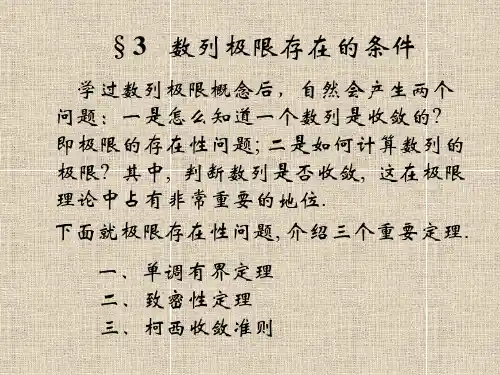 §3 数列极限存在的条件
学过数列极限概念后，自然会产生两个
问题：一是怎么知道一个数列是收敛的？
即极限的存在性问题；二是如何计算数列的
极限？其中，判断数列是否收敛，这在极限
理论中占有非常重要的地位.
下面就极限存在性问题，介绍三个重要定理.
一、单调有界定理
二、致密性定理
三、柯西收敛准则